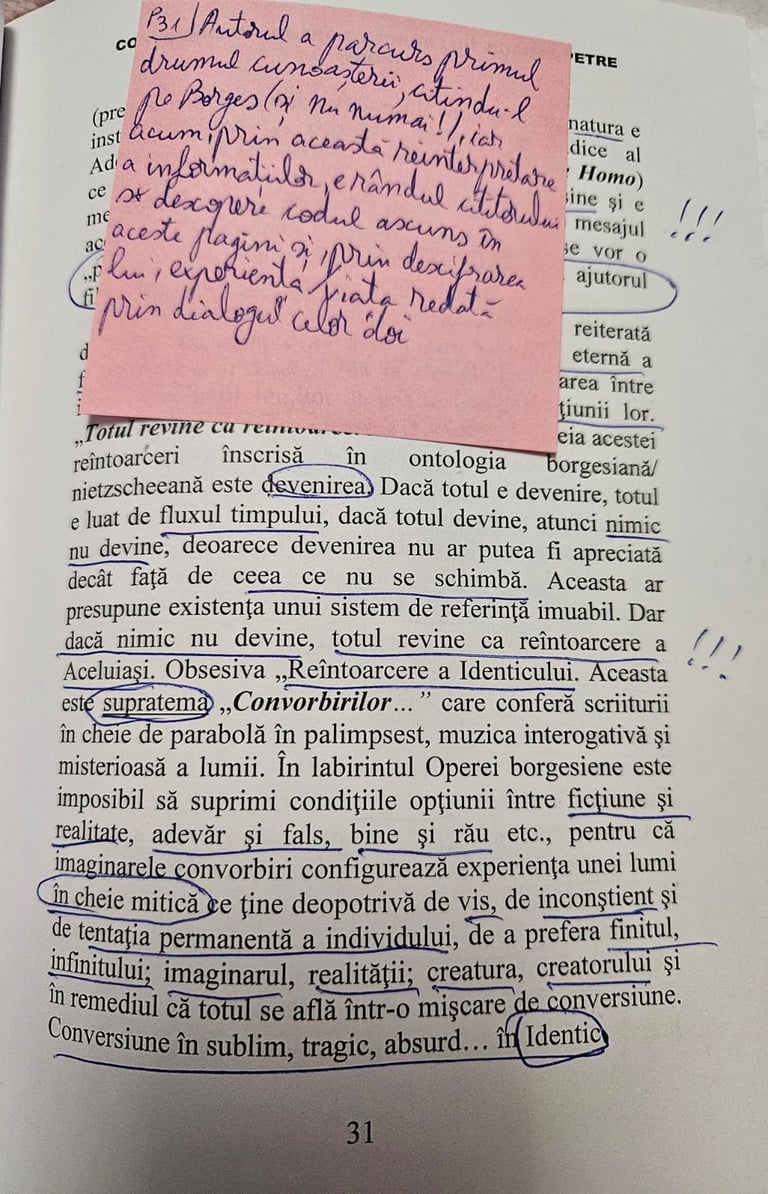 CO
PETRE
P31) Autorul a parcurs primul
drumul cunoașterii, citindu-l
pe Borges (și nu numai!), iar
acum, prin această reinterpretare
a informațiilor, e rândul cititorului
să descopere codul ascuns în
aceste pagini și, prin descifrarea
lui, experiența fiată redată
prin dialogul celor doi
(pre
natura e
inst
dice al
Ad
Homo)
ce
sine şi e
me
mesajul
ac
se vor o
„p
ajutorul
fil
reiterată
d
eternă a
f
area între
i
ţiunii lor.
„Totul revine ca
eia acestei
reîntoarceri înscrisă în ontologia borgesiană/
nietzscheeană este devenirea. Dacă totul e devenire, totul
e luat de fluxul timpului, dacă totul devine, atunci nimic
nu devine, deoarece devenirea nu ar putea fi apreciată
decât faţă de ceea ce nu se schimbă. Aceasta ar
presupune existenţa unui sistem de referinţă imuabil. Dar
dacă nimic nu devine, totul revine ca reîntoarcere a
Aceluiaşi. Obsesiva „Reîntoarcere a Identicului. Aceasta
este supratema „Convorbirilor... ” care conferă scriiturii
în cheie de parabolă în palimpsest, muzica interogativă şi
misterioasă a lumii. În labirintul Operei borgesiene este
imposibil să suprimi condiţiile opţiunii între ficţiune şi
realitate, adevăr şi fals, bine şi rău etc., pentru că
imaginarele convorbiri configurează experienţa unei lumi
în cheie mitică ce ţine deopotrivă de vis, de inconştient şi
de tentaţia permanentă a individului, de a prefera finitul,
infinitului; imaginarul, realităţii; creatura, creatorului şi
în remediul că totul se află într-o mişcare de conversiune.
Conversiune în sublim, tragic, absurd... în Identic
!!!
!!!
31